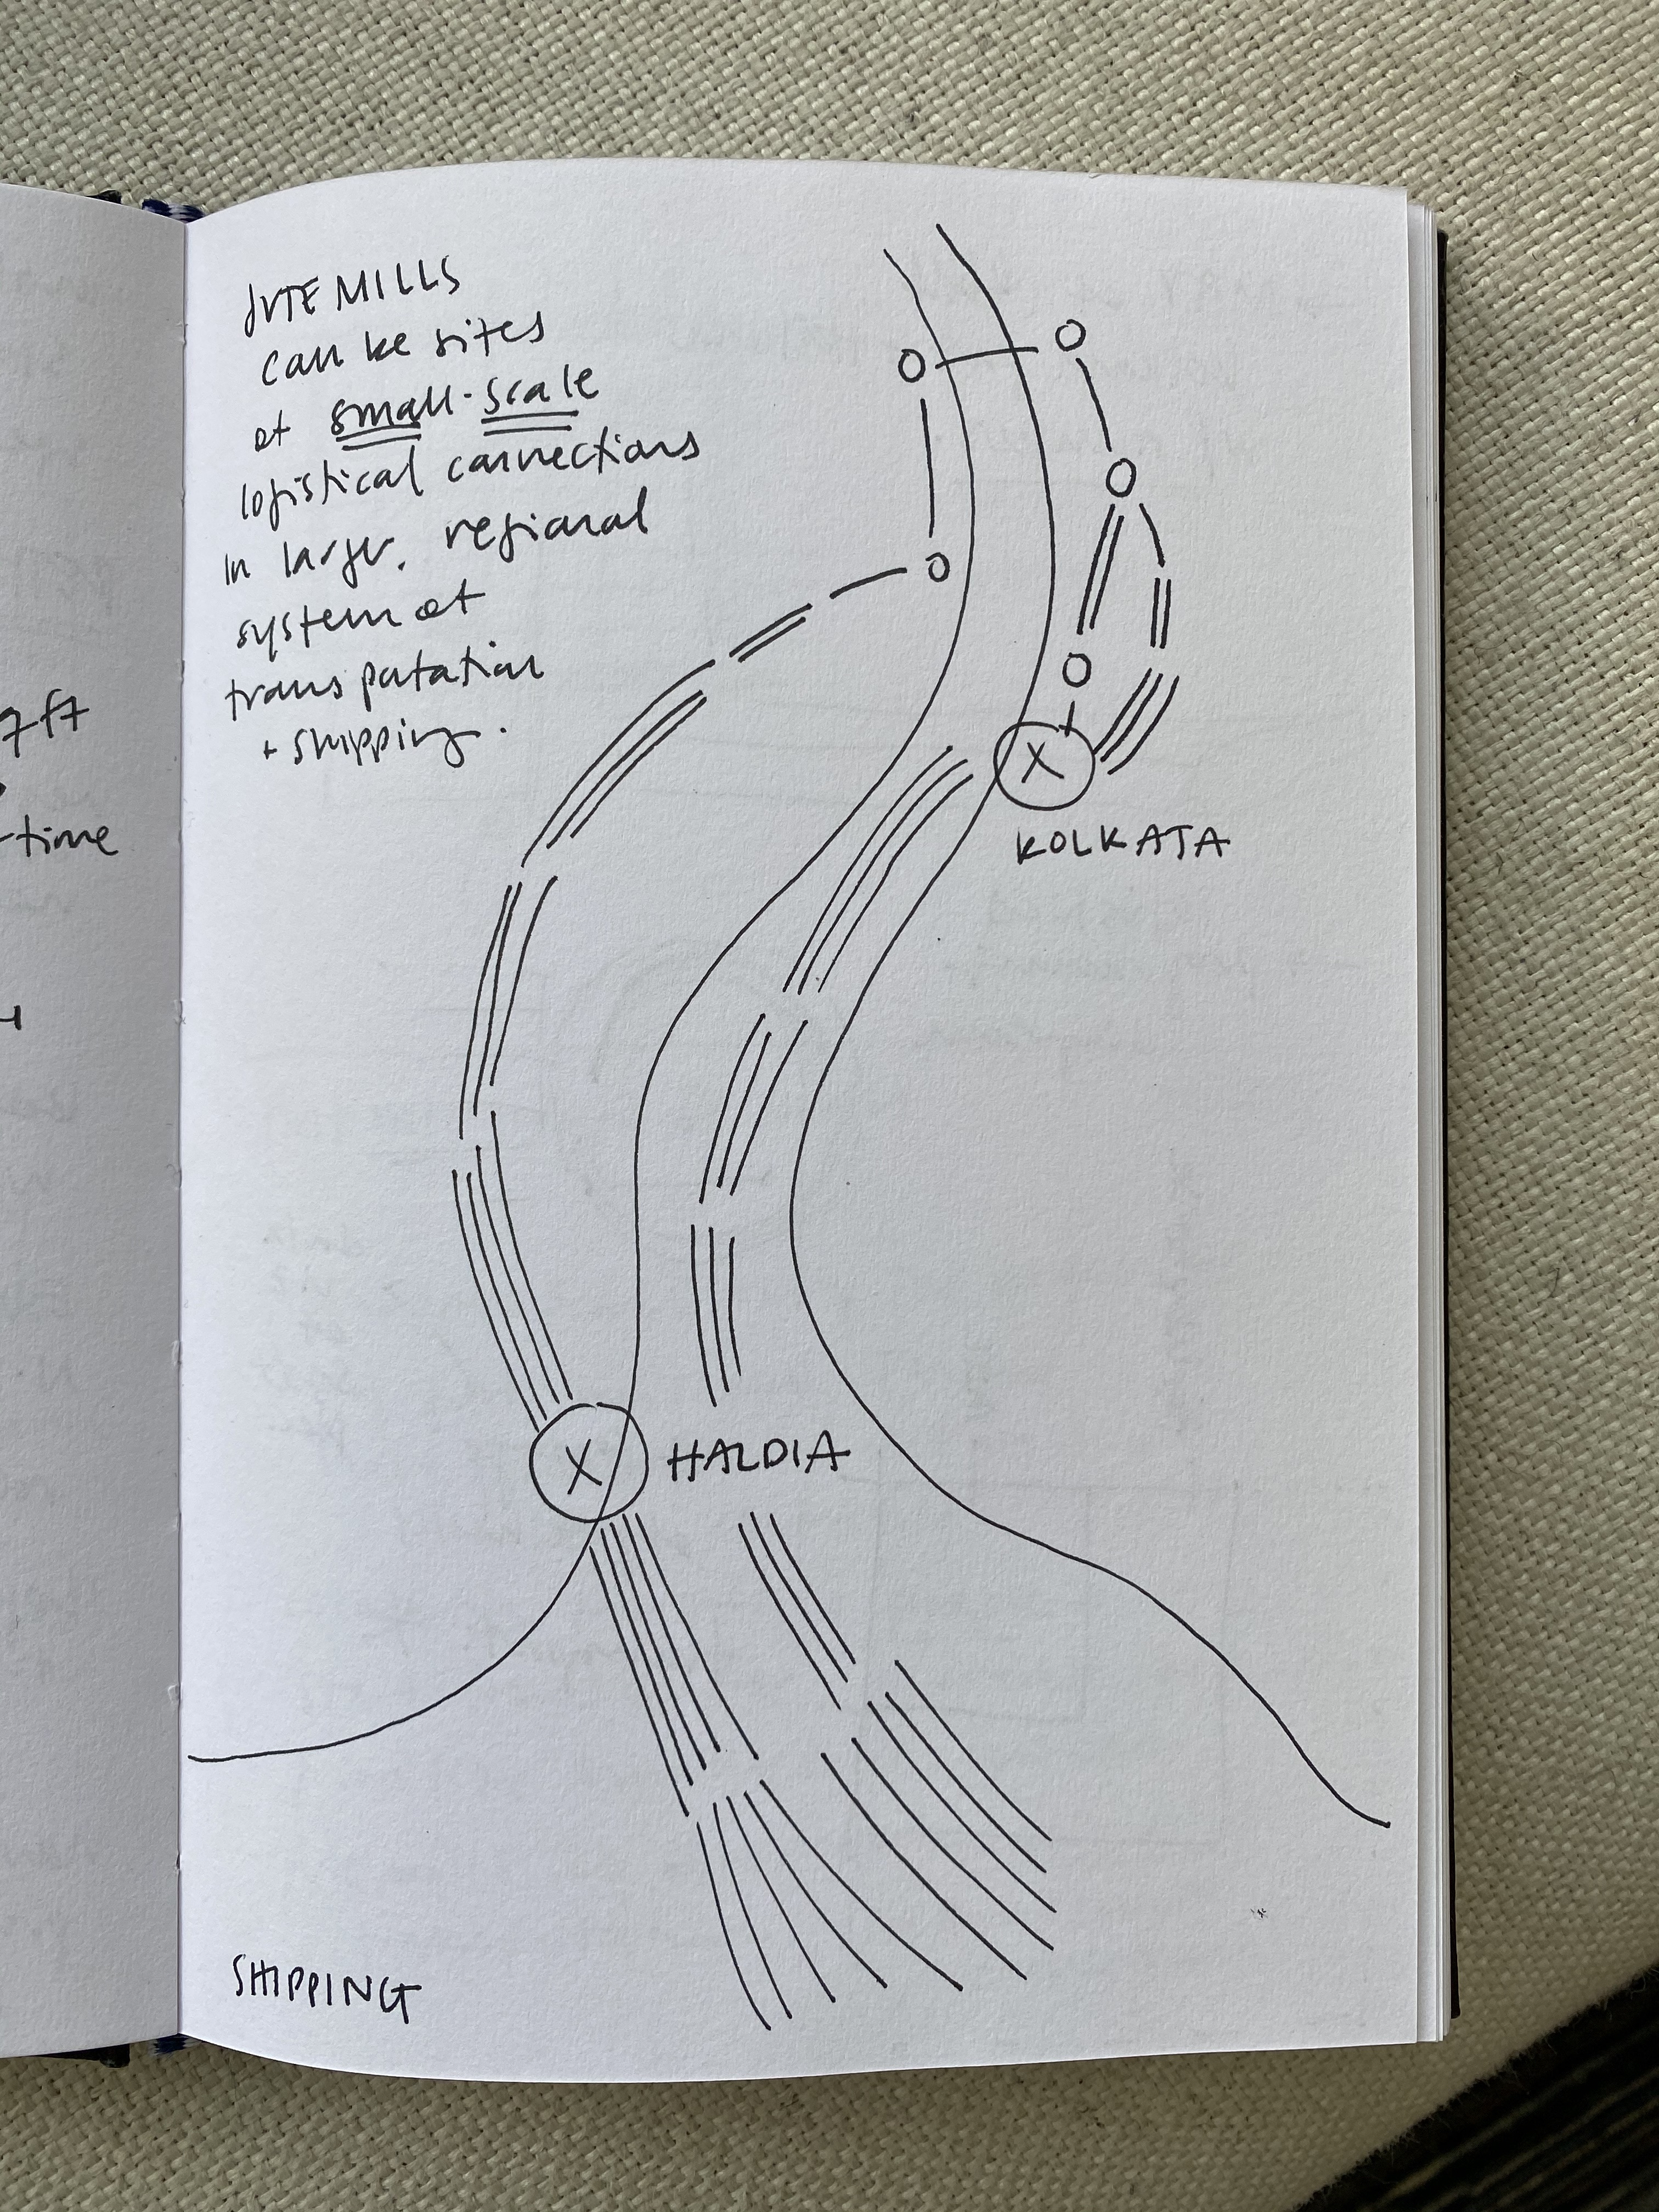 7ft
-time
JUTE MILLS
can be sites
of small-scale
logistical connections
in larger, regional
system of
transportation
+ shipping.
KOLKATA
HALDIA
SHIPPING